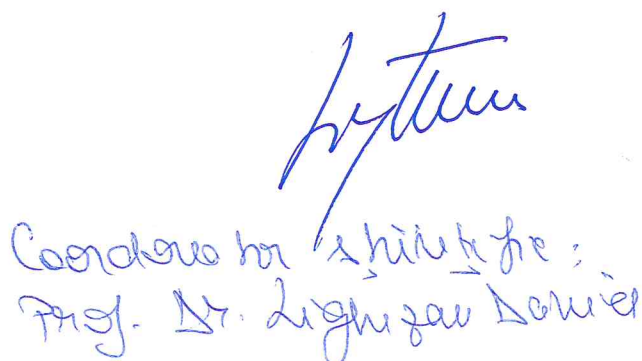 Coordonator științific:
Prof. Dr. Lighezan Daniel